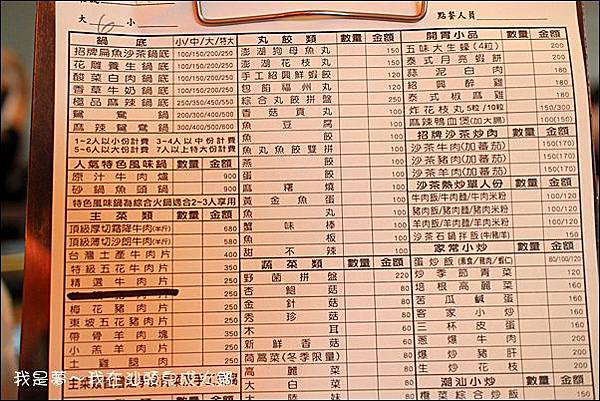 大 小
點餐人員
鍋底 小/中/大/特大
招牌扁魚沙茶鍋底 100/150/200/250
花雕養生鍋底 100/150/200/250
酸菜白肉鍋底 100/150/200/250
香草牛奶鍋底 100/150/200/250
極品麻辣鍋底 250/350/450/550
鴛鴦鍋 200/300/400/500
麻辣鴛鴦鍋 300/400/500/600
1-2人以小份計費 3-4人以中份計費
5-6人以大份計費 7人以上特大份計費
人氣特色風味鍋 數量 金額
原汁牛肉爐 900
砂鍋魚頭鍋 900
特色風味鍋為綜合火鍋適合2-3人享用
主菜類 數量 金額
頂級厚切霜降牛肉(半斤) 680
頂級薄切沙朗牛肉(半斤) 580
台灣土產牛肉片 400
特級五花牛肉片 350
精選牛肉片 250
梅花豬肉片 250
東坡五花豬肉片 250
帶骨羊肉塊 350
小羔羊肉片 250
土雞腿肉 250
丸餃類 數量 金額
澎湖狗母魚丸 150
澎湖花枝丸 150
手工紹興鮮蝦餃 150
包餡福州丸 150
綜合丸餃拼盤 250
香菇貢丸 100
魚豆腐 100
魚餃 100
魚丸魚餃雙拼 100
燕餃 100
蛋餃 100
麻糬燒 100
黃金魚蛋 100
魚丸 100
蟹味棒 100
魚板 100
甜不辣 100
蔬菜類 數量 金額
野菌拼盤 220
杏鮑菇 80
金針菇 80
秀珍菇 80
木耳 80
新鮮香菇 80
茼萵菜(冬季限量) 80
高麗菜 80
大白菜 80
大陸妹 80
開胃小品 數量 金額
五味大生蠔(4粒) 200
泰式月亮蝦餅 200
蒜泥白肉 180
紹興醉雞 180
泰式椒麻雞 180
炸花枝丸5粒/10粒 150/300
麻辣鴨血煲(加大腸) 150(200)
招牌沙茶炒肉 數量 金額
沙茶牛肉(加蕃茄) 150(170)
沙茶豬肉(加蕃茄) 150(170)
沙茶羊肉(加蕃茄) 150(170)
沙茶熱炒單人份 數量 金額
牛肉飯/牛肉麵/牛肉米粉 100
豬肉飯/豬肉麵/豬肉米粉 100
羊肉飯/羊肉麵/羊肉米粉 100
沙茶石鍋拌飯(牛/豬/羊) 150
家常小炒 數量 金額
蛋炒飯(素食/豬肉/蝦仁) 80/100/120
炒季節青菜 120
培根高麗菜 150
苦瓜鹹蛋 150
客家小炒 150
三杯皮蛋 150
蔥爆牛肉 150
爆炒豬肝 150
生炒花枝 200
潮汕小炒 數量 金額
欖菜綜合炒飯 150
我是夢~我在汕頭泉成火鍋